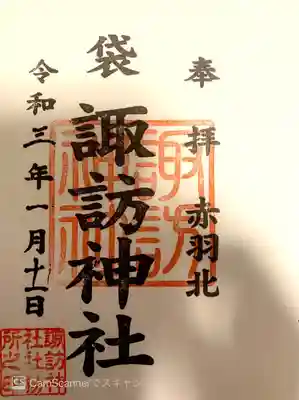 奉拝 赤羽北
袋
諏訪神社
令和三年一月十一日
諏訪神社
諏訪神社社務所之印
CS CamScannerでスキャン